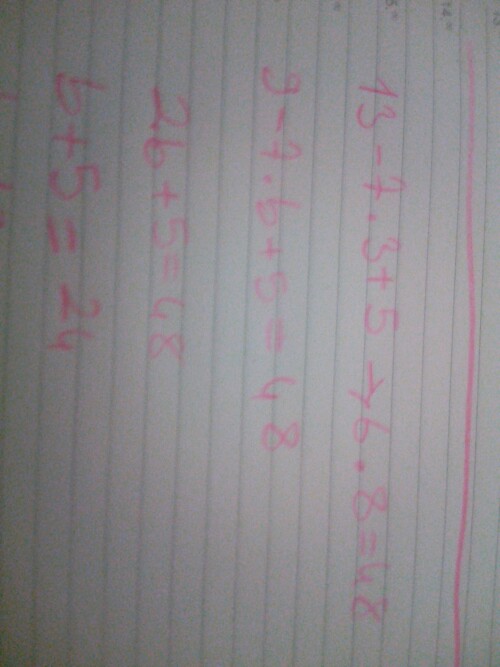 13-7.3+5→6.8=48
9-7.6+5=48
26+5=48
6+5=24